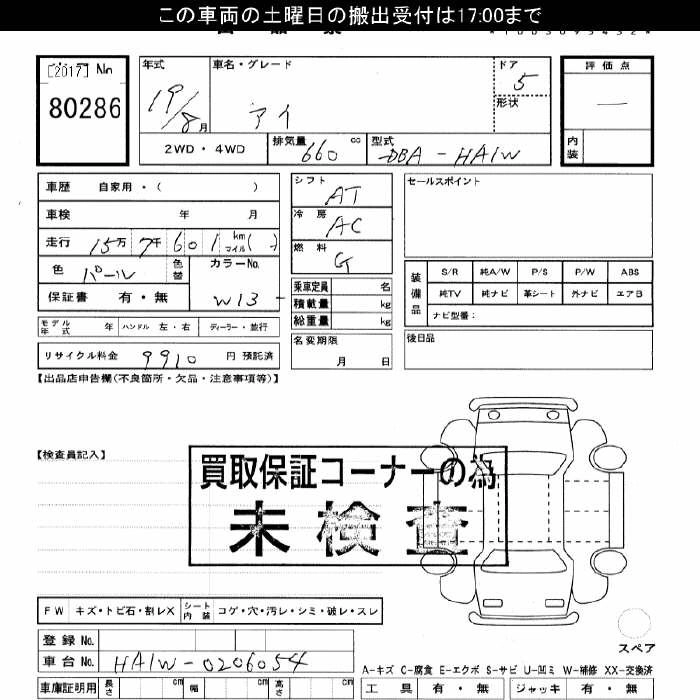 この車両の土曜日の搬出受付は17:00まで
[2017] No
80286
年式 19/8月
車名・グレード アイ
ドア 5
形状
評価点 —
内装
2WD・4WD
排気量 660 cc
型式 DBA-HA1W
車歴 自家用・( )
車検 年 月
走行 15万7千601 km マイル( )
色 パール 色替
カラーNo. W13
保証書 有・無
モデル年式 年 ハンドル 左・右 ディーラー・並行
リサイクル料金 9910 円 預託済
シフト AT
冷房 AC
燃料 G
乗車定員 名
積載量 kg
総重量 kg
名変期限 月 日
セールスポイント
装備品
S/R 純A/W P/S P/W ABS
純TV 純ナビ 革シート 外ナビ エアB
ナビ型番:
後日品
【出品店申告欄(不良箇所・欠品・注意事項等)】
【検査員記入】
買取保証コーナーの為
未検査
FW キズ・トビ石・割レX シート内装 コゲ・穴・汚レ・シミ・破レ・スレ
登録No.
車台No. HA1W-0206054
車庫証明用 長さ cm 幅 cm 高さ cm
スペア
A-キズ C-腐食 E-エクボ S-サビ U-凹ミ W-補修 XX-交換済
工具 有・無 ジャッキ 有・無